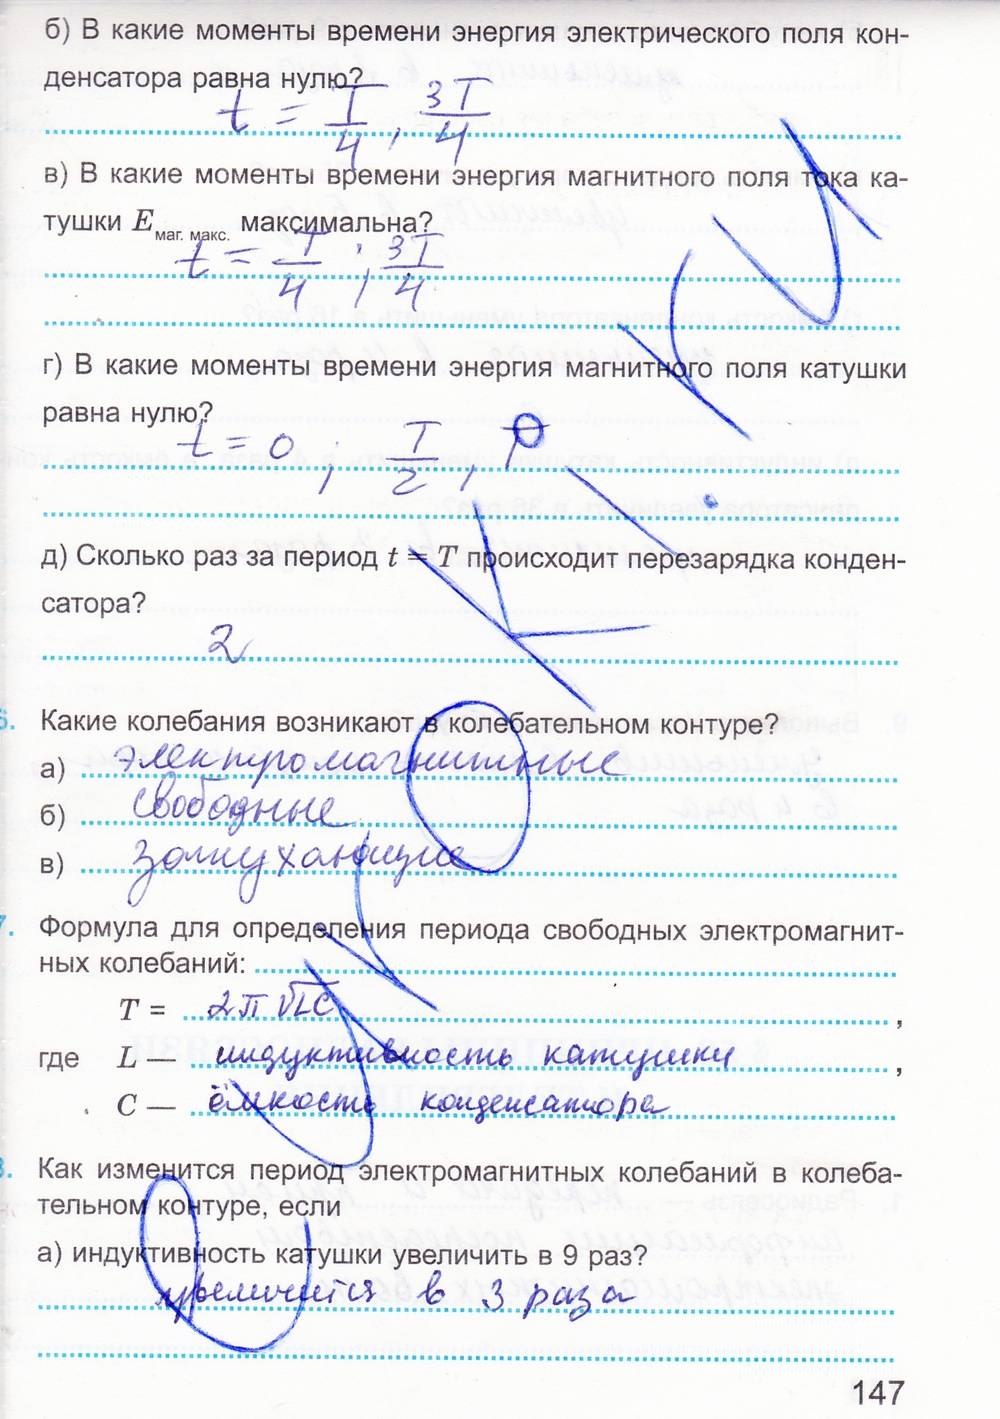 б) В какие моменты времени энергия электрического поля кон-
денсатора равна нулю?
t = T/4, 3T/4
в) В какие моменты времени энергия магнитного поля тока ка-
тушки E маг. макс. максимальна?
t = T/4; 3T/4
г) В какие моменты времени энергия магнитного поля катушки
равна нулю?
t = 0; T/2,
д) Сколько раз за период t = T происходит перезарядка конден-
сатора?
2
6. Какие колебания возникают в колебательном контуре?
а) электромагнитные
б) свободные
в) затухающие
7. Формула для определения периода свободных электромагнит-
ных колебаний:
T = 2π √LC,
где L — индуктивность катушки,
C — ёмкость конденсатора
8. Как изменится период электромагнитных колебаний в колеба-
тельном контуре, если
а) индуктивность катушки увеличить в 9 раз?
увеличится в 3 раза
147